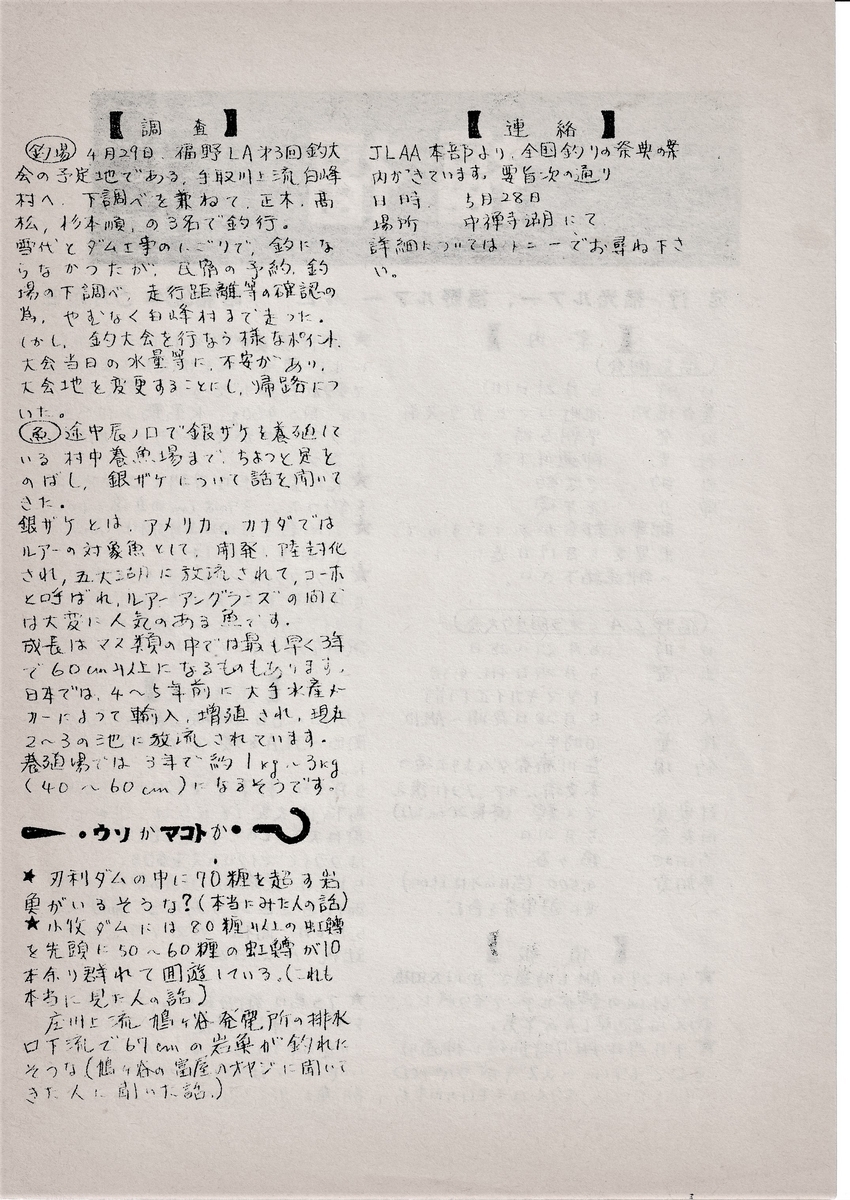 【調 査】
釣場 4月29日、福野LA第3回釣大
会の予定地である、手取川上流白峰
村へ、下調べを兼ねて、正木、髙
松、杉本順、の3名で釣行。
雪代とダム工事のにごりで、釣にな
らなかつたが、民宿の予約、釣
場の下調べ、走行距離等の確認の
為、やむなく白峰村まで走った。
しかし、釣大会を行なう様なポイント、
大会当日の水量等に、不安があり、
大会地を変更することにし、帰路につ
いた。
魚 途中辰ノ口で銀ザケを養殖して
いる村中養魚場まで、ちょっと足を
のばし、銀ザケについて話を聞いて
きた。
銀ザケとは、アメリカ、カナダでは
ルアーの対象魚として、開発、陸封化
され、五大湖に放流されて、コーホ
と呼ばれ、ルアーアングラーズの間で
は大変に人気のある魚です。
成長はマス類の中では最も早く3年
で60cm以上になるものもあります。
日本では、4〜5年前に大手水産メー
カーによって輸入、増殖され、現在
2〜3の池に放流されています。
養殖場では3年で約1kg〜3kg
(40〜60cm)になるそうです。
・ウソかマコトか・?
★ 刃利ダムの中に70糎を超す岩
魚がいるそうな?(本当にみた人の話)
★小牧ダムには80糎以上の虹鱒
を先頭に50〜60糎の虹鱒が10
本余り群れて回遊している。(これも
本当に見た人の話)
庄川上流鳩ヶ谷発電所の排水
口下流で67cmの岩魚が釣れた
そうな(鳩ヶ谷の 屋のオヤジに聞いて
きた人に聞いた話。)
【連 絡】
JLAA本部より、全国釣りの祭典の案
内がきています。要旨次の通り
日時、 5月28日
場所 中禅寺湖にて
詳細についてはトニーでお尋ね下さ
い。